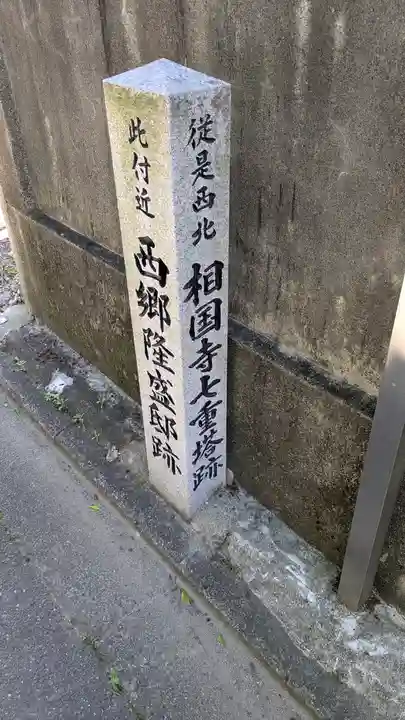 此付近 西郷隆盛邸跡
従是西北 相国寺七重塔跡